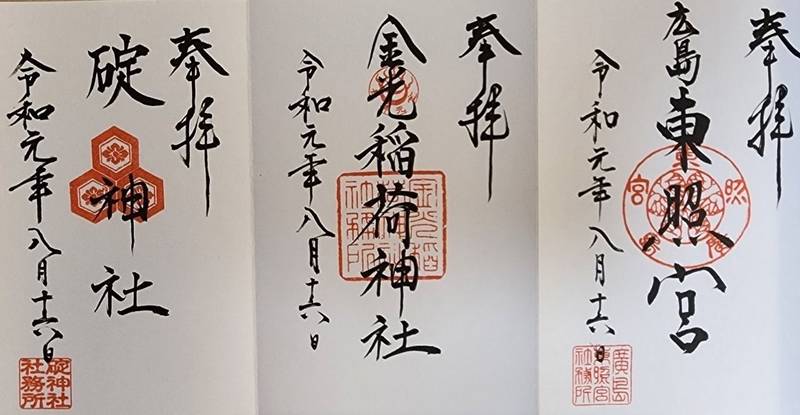 奉拝
広島東照宮
令和元年八月十六日
廣島
東照宮
社務所
奉拝
金光稲荷神社
令和元年八月十六日
金光稲
社務所
奉拝
碇神社
令和元年八月十六日
碇神社
社務所